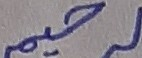 لرحیم